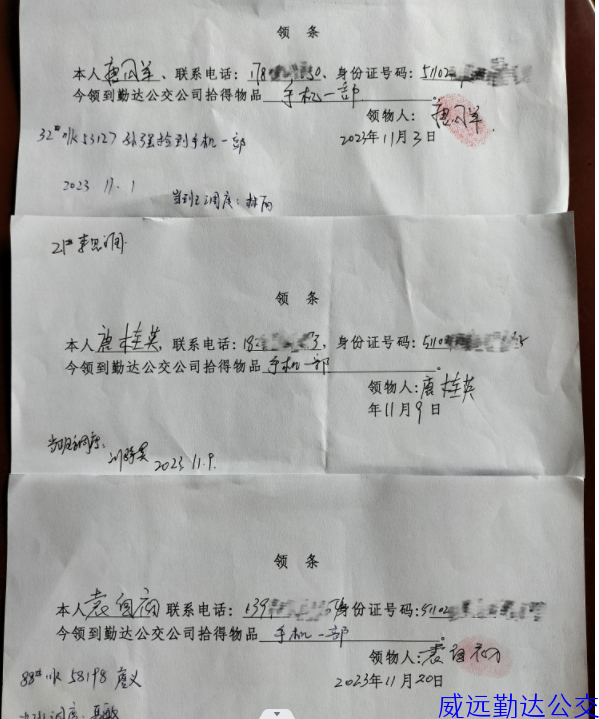 领 条
本人唐闪羊、联系电话：178 50、身份证号码：51102
今领到勤达公交公司拾得物品 手机一部 。
领物人：唐闪羊
2023年11月3日
32# 川K53127 孙强捡到手机一部
2023 11. 1
当班调度：林雨
21#李思润
领 条
本人唐桂英，联系电话：18 3，身份证号码：51102
今领到勤达公交公司拾得物品 手机一部 。
领物人：唐桂英
年11月9日
当班调度：
2023 11.9.
领 条
本人袁 联系电话：139 身份证号码：51102
今领到勤达公交公司拾得物品 手机一部 。
领物人：袁
2023年11月20日
88# 川K 58198 唐义
调度：
威远勤达公交